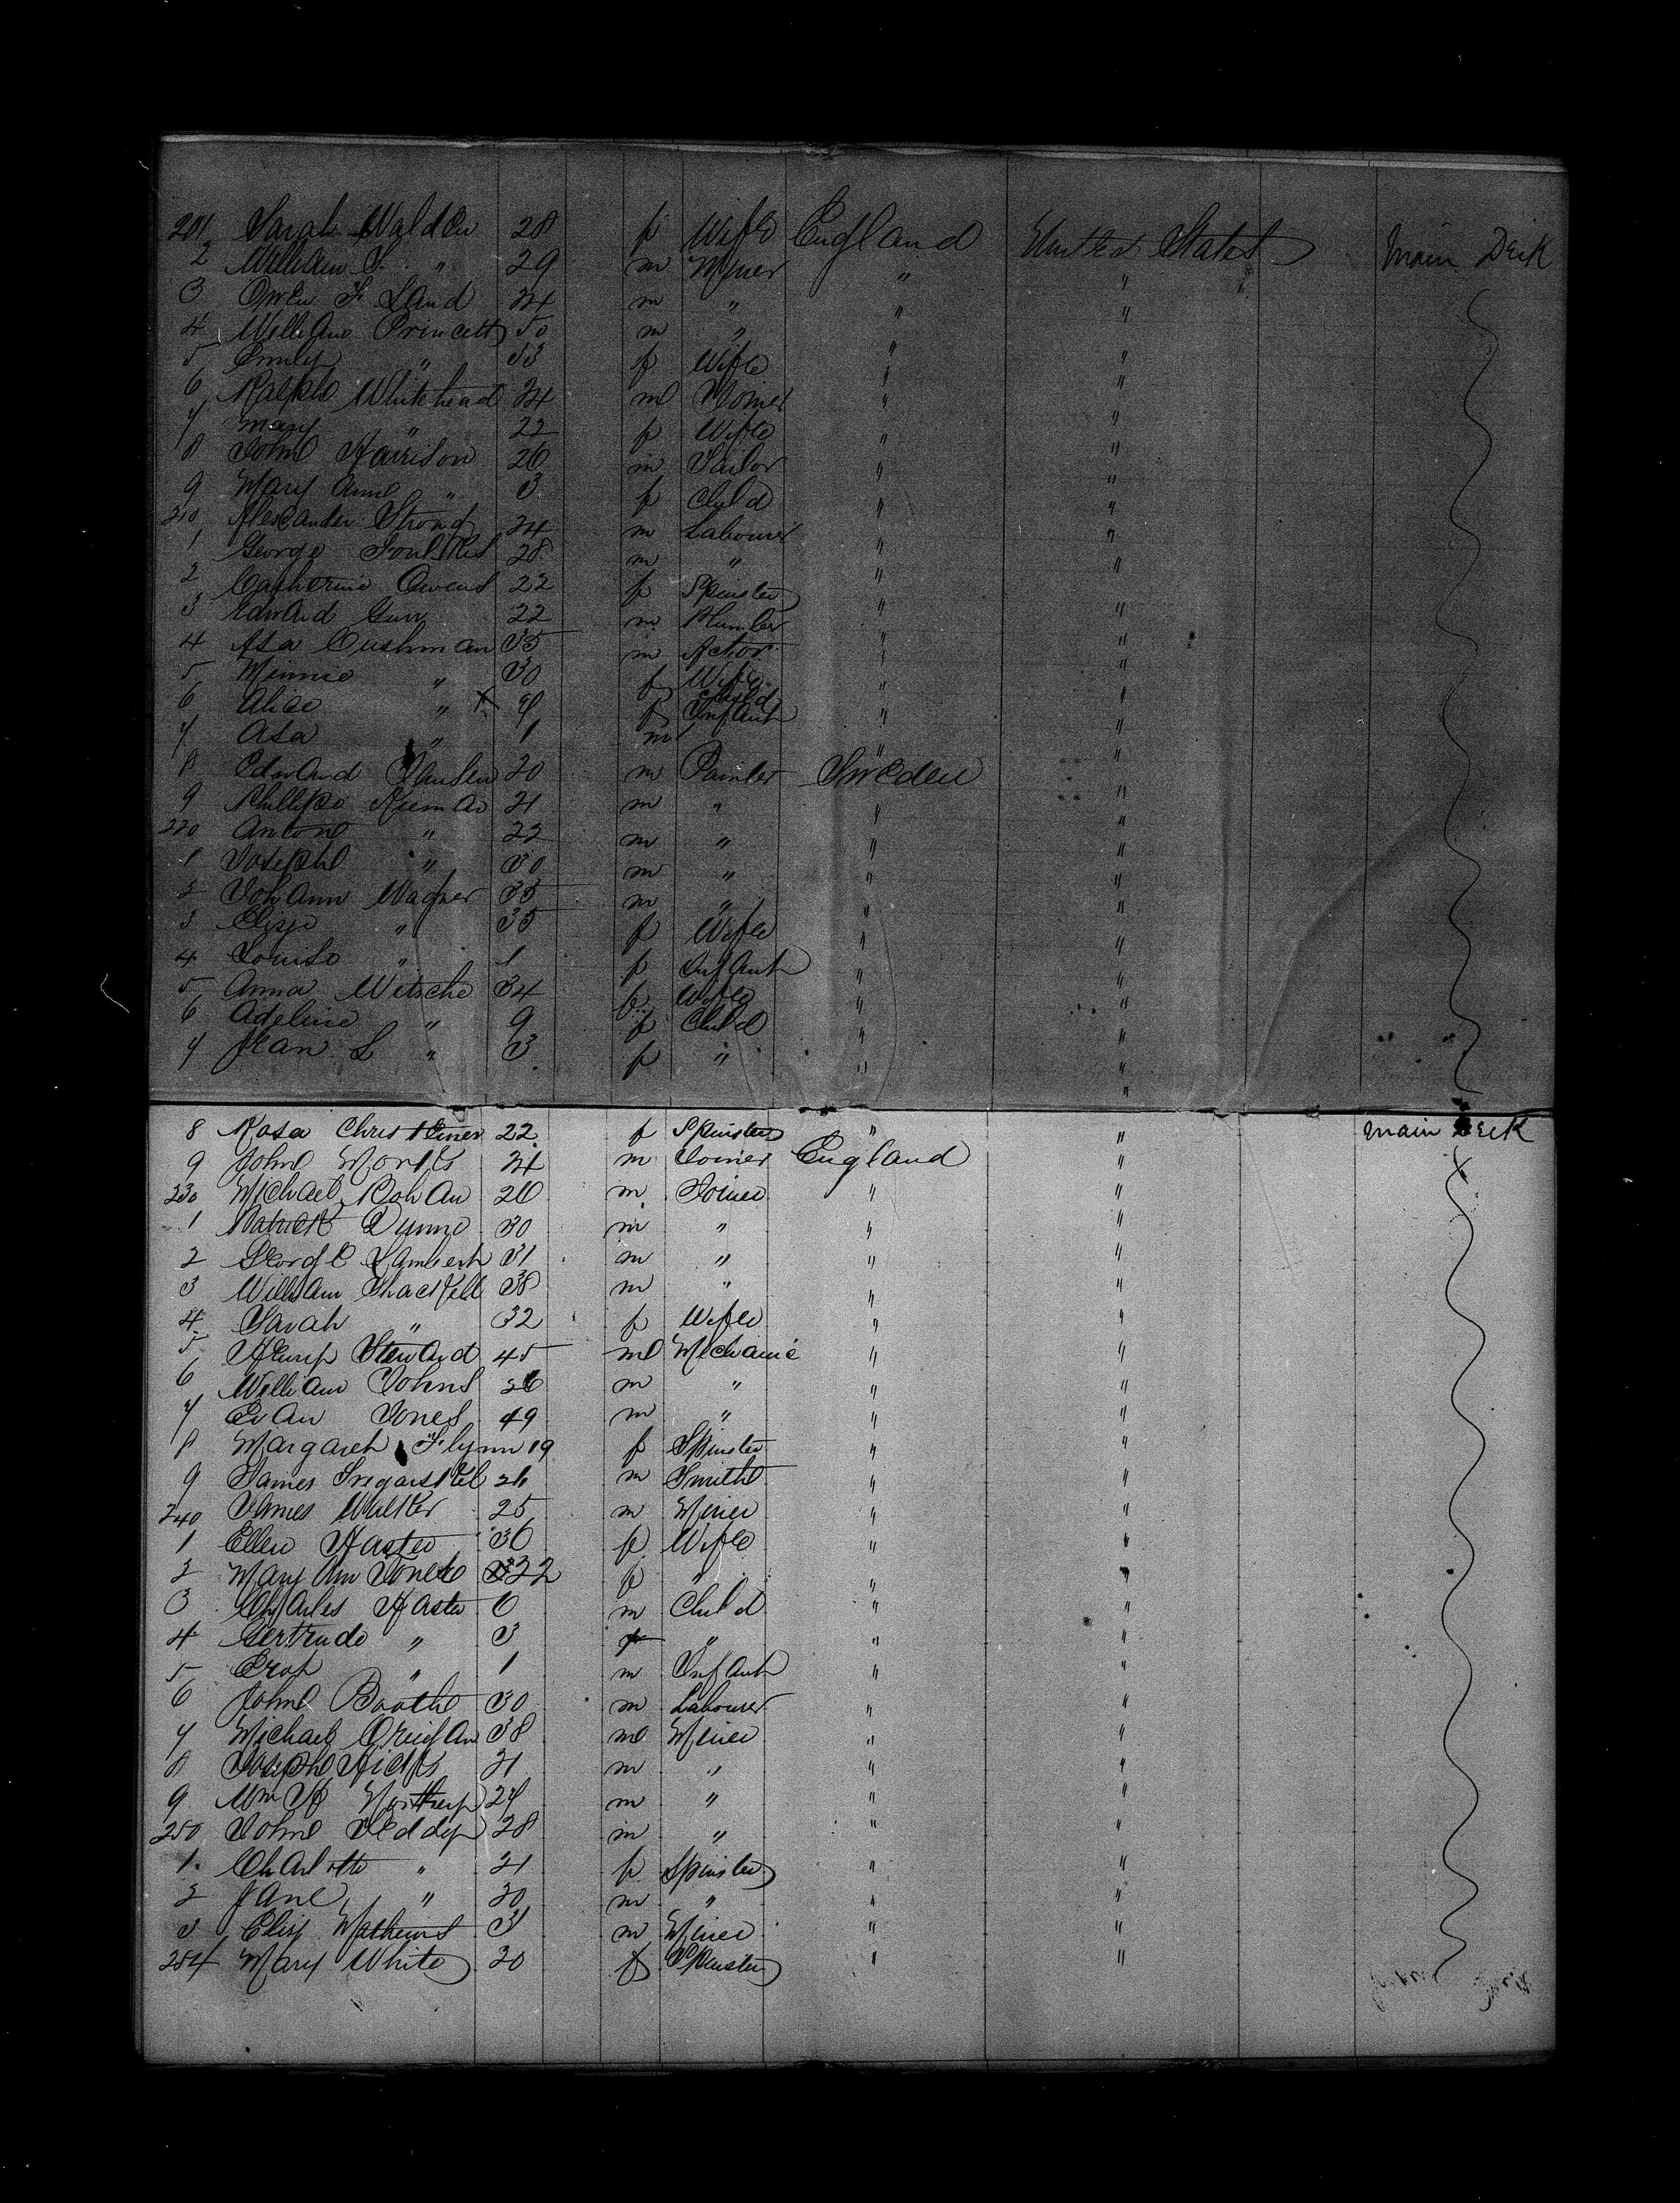 201 Sarah Walden 28 f Wife England United States Main Deck
2 William S. " 29 m Miner " "
3 Owen F. Land 24 m " " "
4 William Princett 50 m " " "
5 Emily " 53 f Wife " "
6 Ralph Whitehead 24 m Joiner " "
7 Mary " 22 f Wife " "
8 John Harrison 26 m Sailor " "
9 Mary Ann " 3 f Child " "
210 Alexander Strong 24 m Labourer " "
1 George 28 m " " "
2 Catherine Owens 22 f Spinster " "
3 Edward Gurr 22 m Plumber " "
4 Asa Cushman 35 m Actor " "
5 Minnie " 30 f Wife " "
6 Alice " X 7 f Child " "
7 Asa " 1 m Infant " "
8 Edward 20 m Painter Sweden "
9 Phillipo 21 m " " "
220 Antone " 22 m " " "
1 Joseph " 30 m " " "
2 Johann Wagner 35 m " " "
3 " 35 f Wife " "
4 Louise " 1 f Infant " "
5 Anna Witsche 34 f Wife " "
6 Adeline " 9 f Child " "
7 Jean L " 3 f " " "
8 Rosa 22 f Spinster " " Main Deck
9 John Monks 24 m Joiner England "
230 Michael Bohan 26 m Joiner " "
1 Patrick Dunne 30 m " " "
2 George Lambert 31 m " " "
3 William 38 m " " "
4 Sarah " 32 f Wife " "
5 Henry Steward 45 m Mechanic " "
6 William Johns 26 m " " "
7 Evan Jones 49 m " " "
8 Margaret Flynn 19 f Spinster " "
9 James 26 m Smith " "
240 James Walker 25 m Miner " "
1 Ellen Haster 36 f Wife " "
2 Mary Ann 22 f " " "
3 Charles Haster 6 m Child " "
4 Gertrude " 3 f " " "
5 " 1 m Infant " "
6 John Booth 30 m Labourer " "
7 Michael 38 m Miner " "
8 Joseph Hicks 21 m " " "
9 Wm H Northey 27 m " " "
250 John Teddy 28 m " " "
1 Charlotte " 21 f Spinster " "
2 Jane " 20 m " " "
3 Eliz Mathews 31 m Miner " "
254 Mary White 20 f Spinster " "